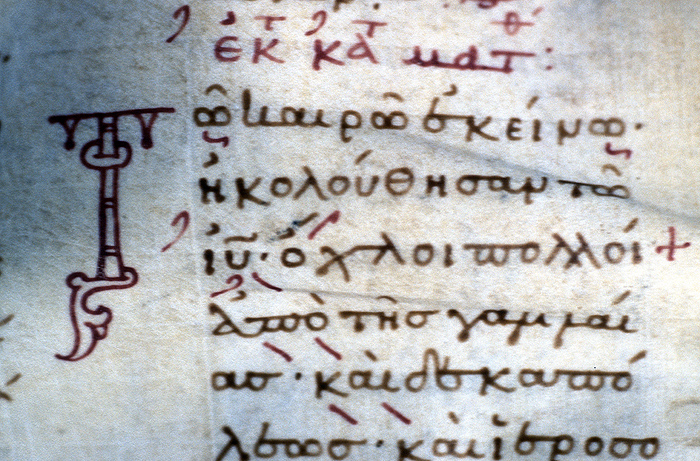 ἐκ τ κατ ματ:
Τῶ καιρῶ ἐκείνω·
ἠκολούθησαν τῶ
ἰῦ· ὄχλοι πολλοί
ἀπὸ τῆσ γαλιλαί
ασ· καὶ δεκαπό
λεωσ· καὶ ἱεροσο